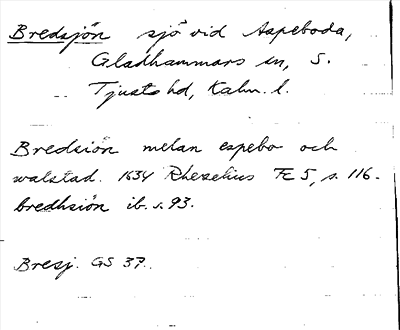 Bredsjön sjö vid Aspeboda,
Gladhammars sn, S.
Tjusts hd, Kalm. l.
Bredsiön melan espebo och
walstad. 1634 Rhezelius Fc 5, s. 116.
bredhsiön ib. s. 93.
Bresj. GS 37.